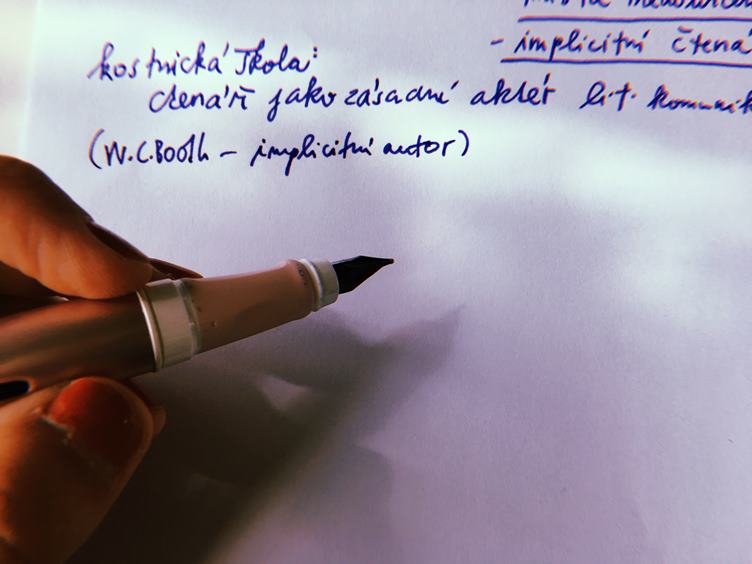 - implicitní čtená
kostnická škola:
čtenář jako zásadní aktér lit. komunik
(W.C.Booth – implicitní autor)